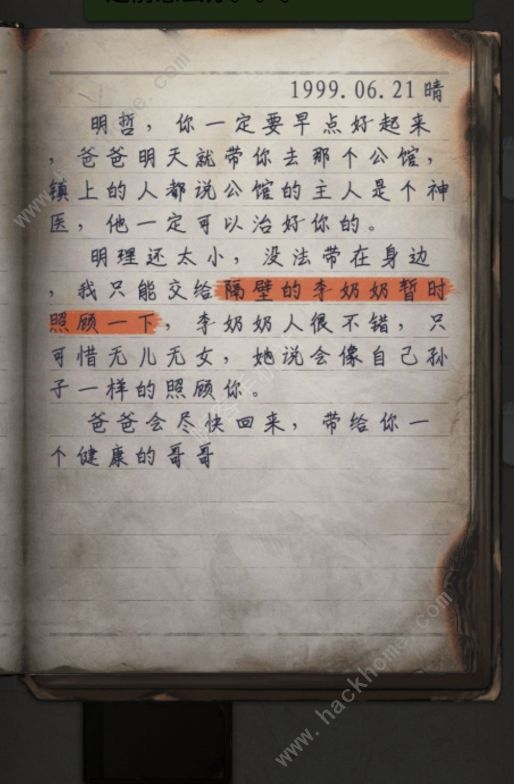 1999.06.21 晴
明哲，你一定要早点好起来
，爸爸明天就带你去那个公馆，
镇上的人都说公馆的主人是个神
医，他一定可以治好你的。
明理还太小，没法带在身边
，我只能交给隔壁的李奶奶暂时
照顾一下，李奶奶人很不错，只
可惜无儿无女，她说会像自己孙
子一样的照顾你。
爸爸会尽快回来，带给你一
个健康的哥哥
www.hackhome.com
www.hackhome.com